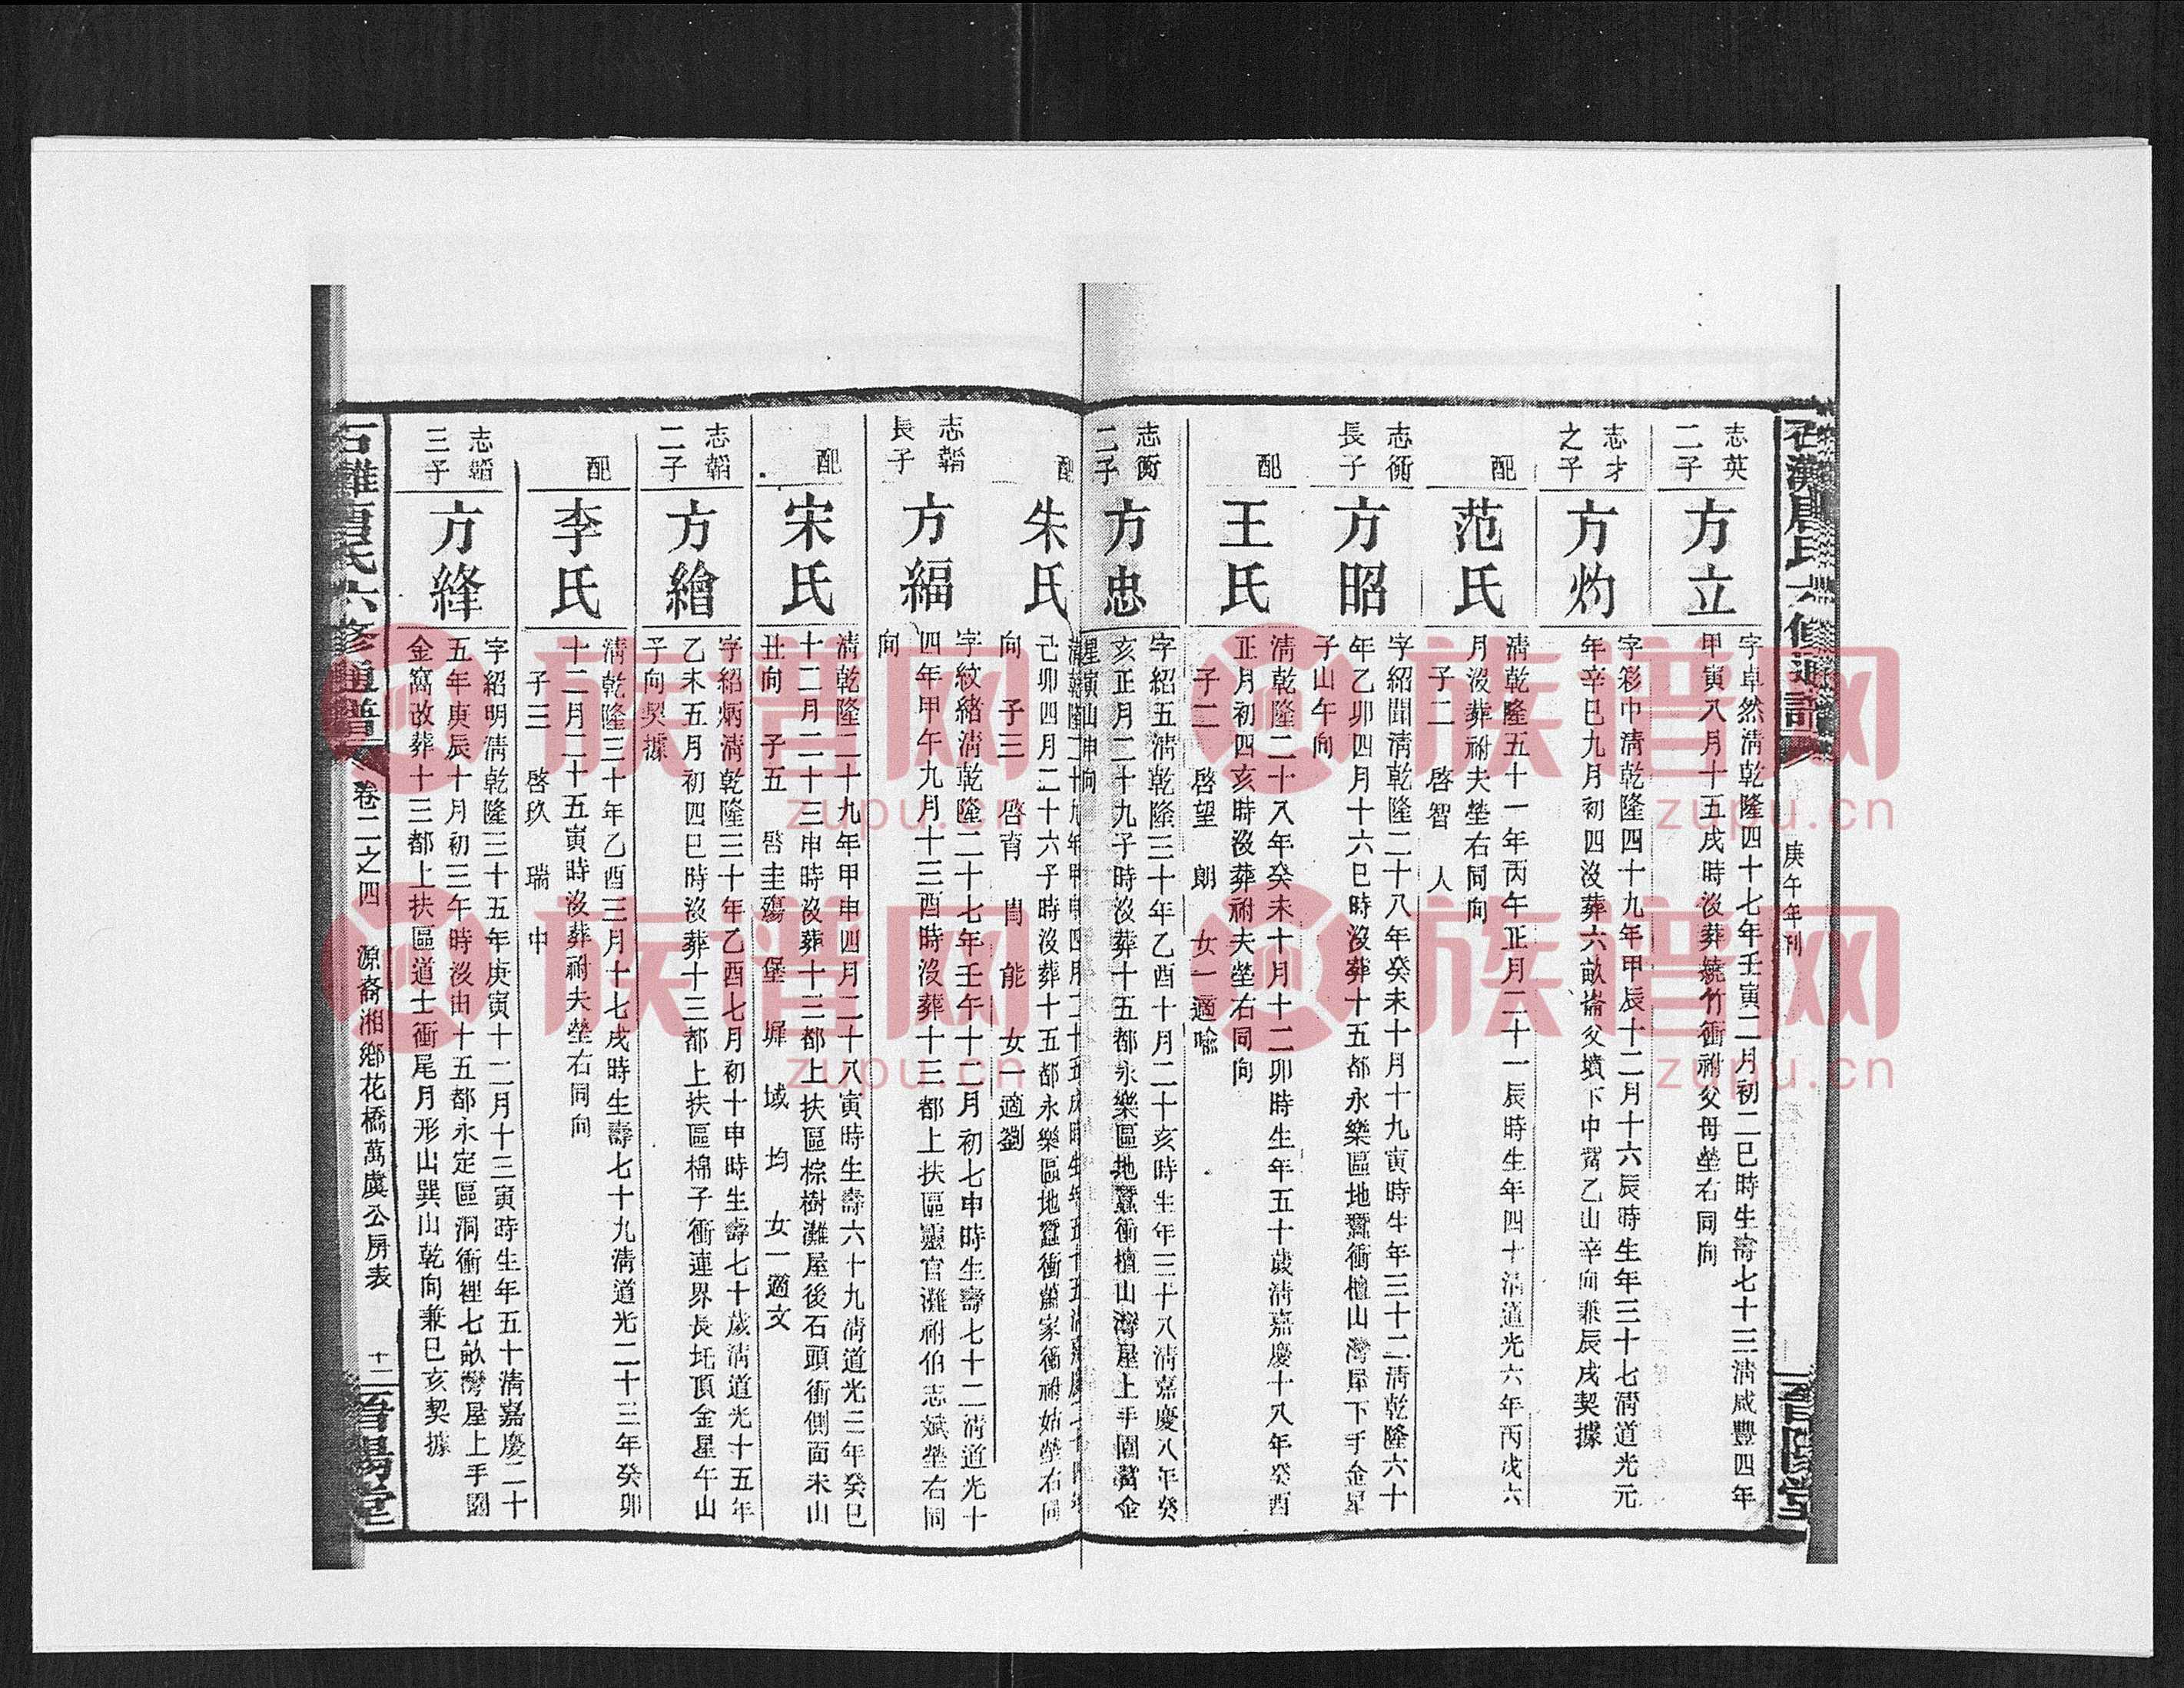 庚午年刊
志英
二子
方立
字卓然淸乾隆四十七年壬寅二月初二巳時生壽七十三淸咸豐四年
甲寅八月十五戌時沒葬燒竹衝祔父母塋右同向
志才
之子
方灼
字彩巾淸乾隆四十九年甲辰十二月十六辰時生年三十七淸道光元
年辛巳九月初四沒葬六畝崙父墳下中嵒乙山辛向兼辰戌契據
配
范氏
淸乾隆五十一年丙午正月二十一辰時生年四十淸道光六年丙戌六
月沒葬祔夫塋右同向
子二 啓智 人
志衡
長子
方昭
字紹聞淸乾隆二十八年癸未十月十九寅時生年三十二淸乾隆六十
年乙卯四月十六巳時沒葬十五都永樂區地蠶衝檀山灣犀下手金星
子山午向
配
王氏
淸乾隆二十八年癸未十月十二卯時生年五十歲淸嘉慶十八年癸酉
正月初四亥時沒葬祔夫塋右同向
子二 啓望 朗 女一適喩
志衡
二子
方忠
字紹五淸乾隆三十年乙酉十月二十亥時生年三十八淸嘉慶八年癸
亥正月二十九子時沒葬十五都永樂區地蠶衝檀山灣屋上手圍嵒金
星寅山申向
配
朱氏
己卯四月二十六子時沒葬十五都永樂區地蠶衝蕭家衝祔姑塋右同
向 子三 啓肯 閏 能 女一適劉
志韜
長子
方緼
字紋緒淸乾隆二十七年壬午十二月初七申時生壽七十二淸道光十
四年甲午九月十三酉時沒葬十三都上扶區靈官灘祔伯志斌塋右同
向
配
宋氏
淸乾隆二十九年甲申四月二十八寅時生壽六十九淸道光三年癸巳
十二月二十三申時沒葬十三都上扶區棕樹灘屋後石頭衝側面未山
丑向 子五 啓圭殤 堡 墀 域 均 女一適文
志韜
二子
方繪
字紹炳淸乾隆三十年乙酉七月初十申時生壽七十歲淸道光十五年
乙未五月初四巳時沒葬十三都上扶區棉子衝連界長圫頂金星午山
子向契據
配
李氏
淸乾隆三十年乙酉三月十七戌時生壽七十九淸道光二十三年癸卯
十二月二十五寅時沒葬祔夫塋右同向
子三 啓玖 瑞 申
志韜
三子
方絳
字紹明淸乾隆三十五年庚寅十二月十三寅時生年五十淸嘉慶二十
五年庚辰十月初三午時沒由十五都永定區洞衝裡七畝灣屋上手圍
金窩改葬十三都上扶區道士衝尾月形山巽山乾向兼巳亥契據
石灘唐氏六修通譜 卷二之四 源裔湘鄉花橋萬虞公房表 十二 晉陽堂
族谱网
zupu.cn
族谱网
zupu.cn
族谱网
zupu.cn
族谱网
zupu.cn